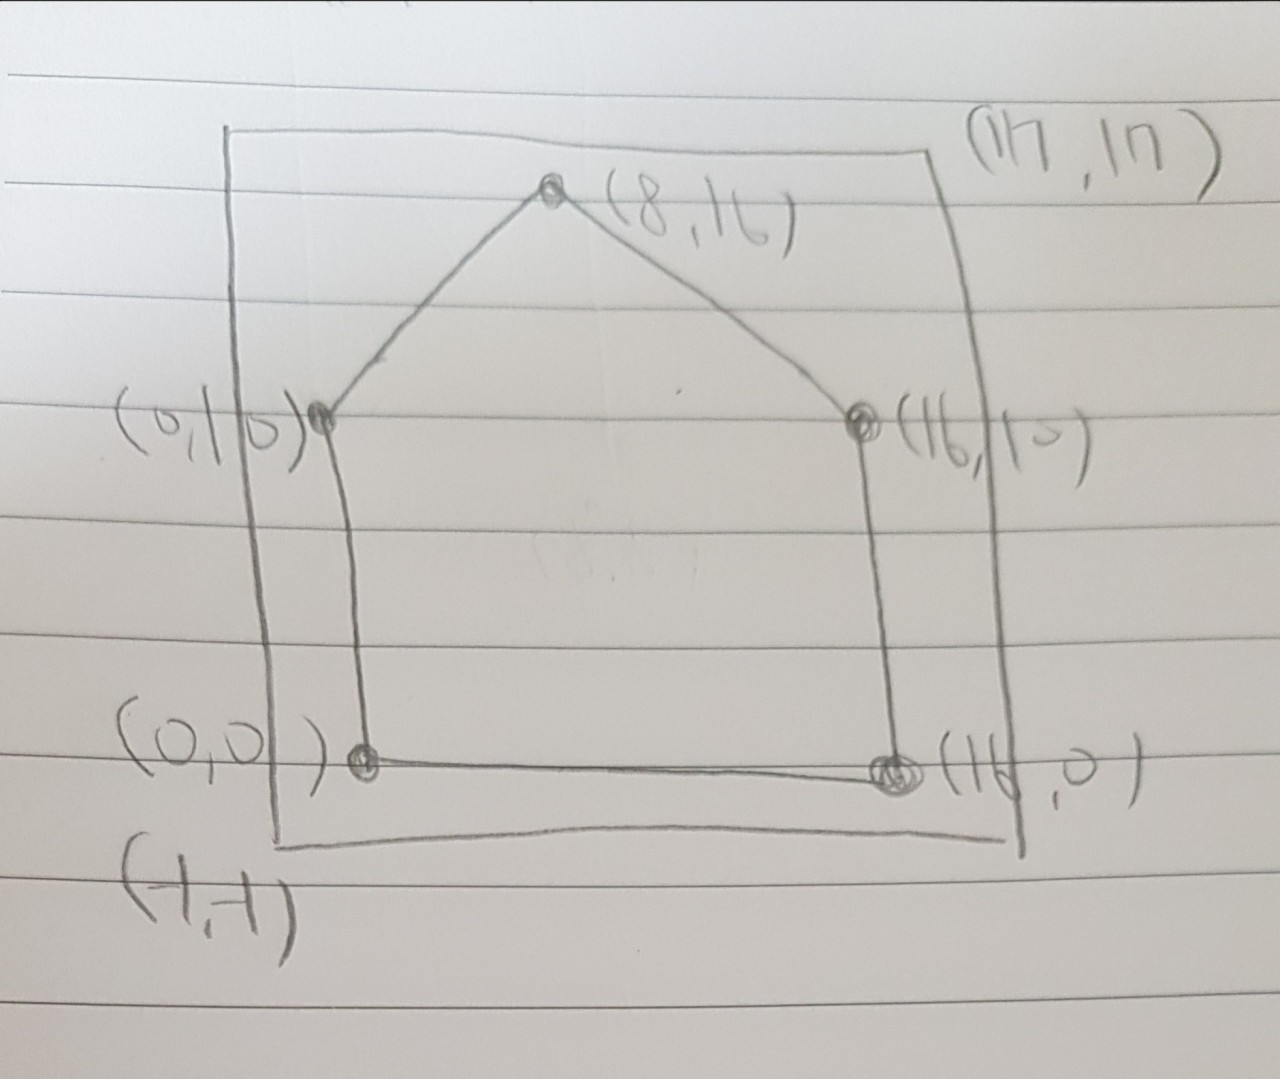 (17,17)
(8,16)
(0,10) (16,10)
(0,0) (16,0)
(-1,-1)